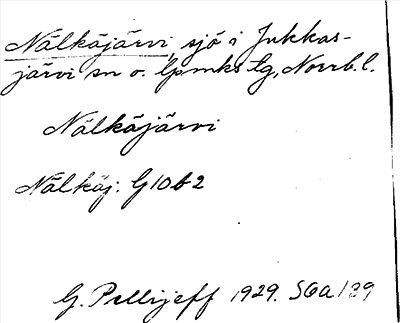 Nälkäjärvi, sjö i Jukkas-
järvi sn o. lpmks tg, Norrb. l.
Nälkäjärvi
Nälkäj: G10b2
G. Pellijeff 1929. SOa/39